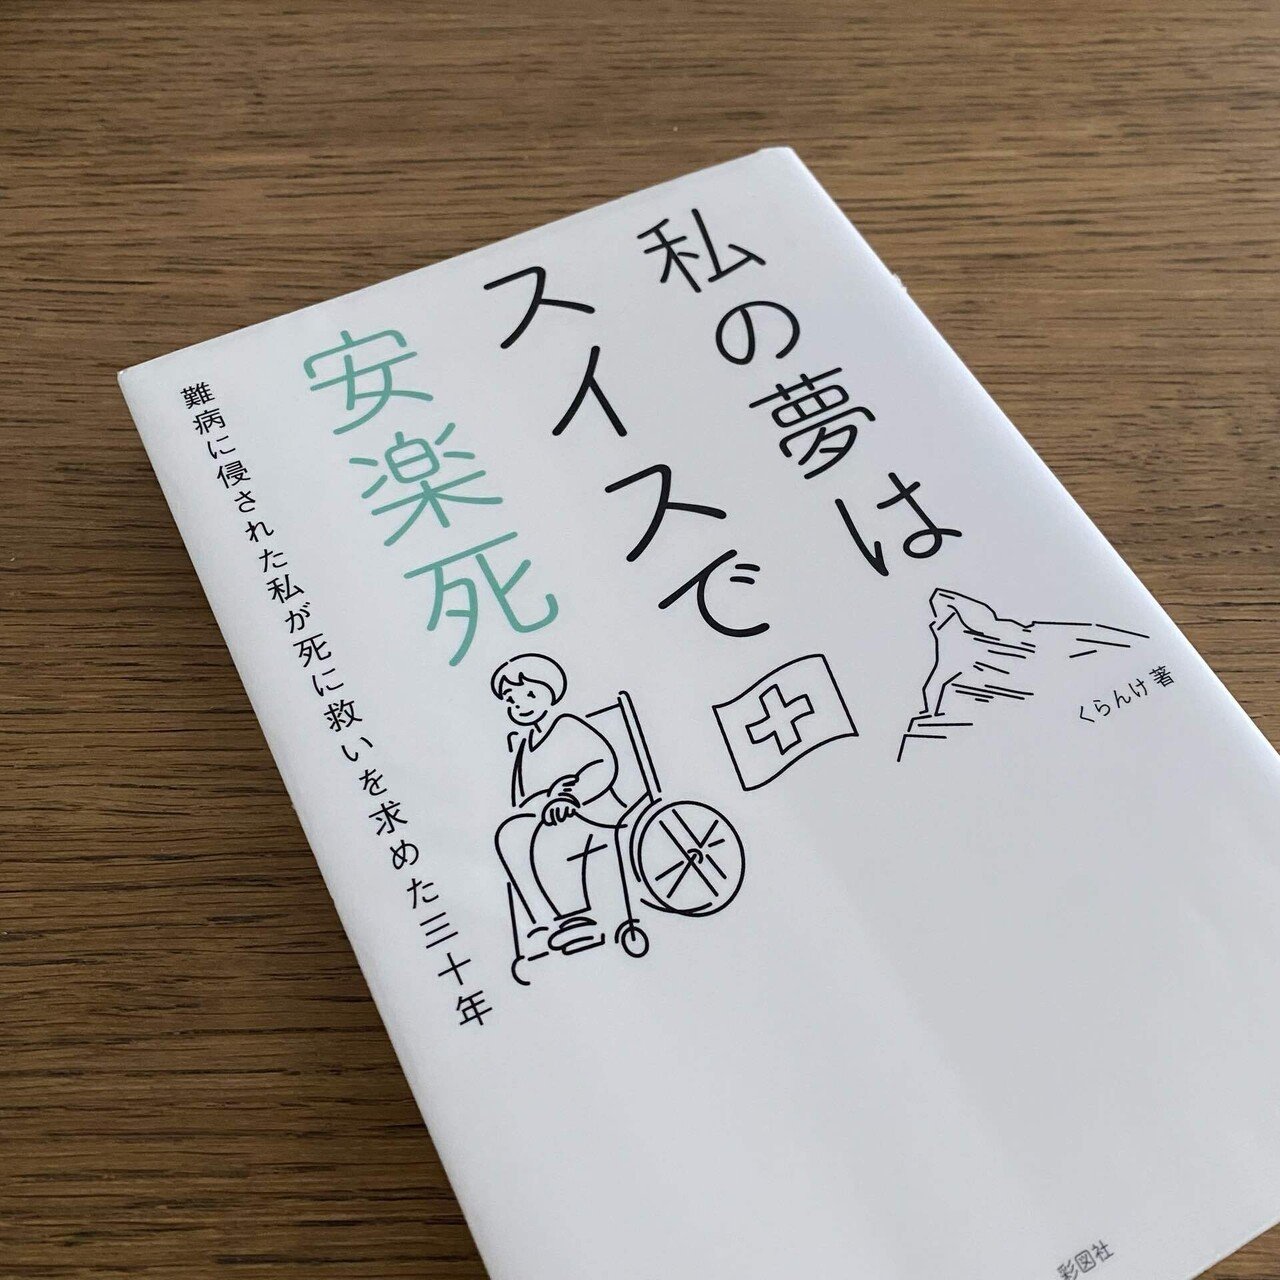 私の夢は
スイスで
安楽死
難病に侵された私が死に救いを求めた三十年
くらんけ 著
彩図社